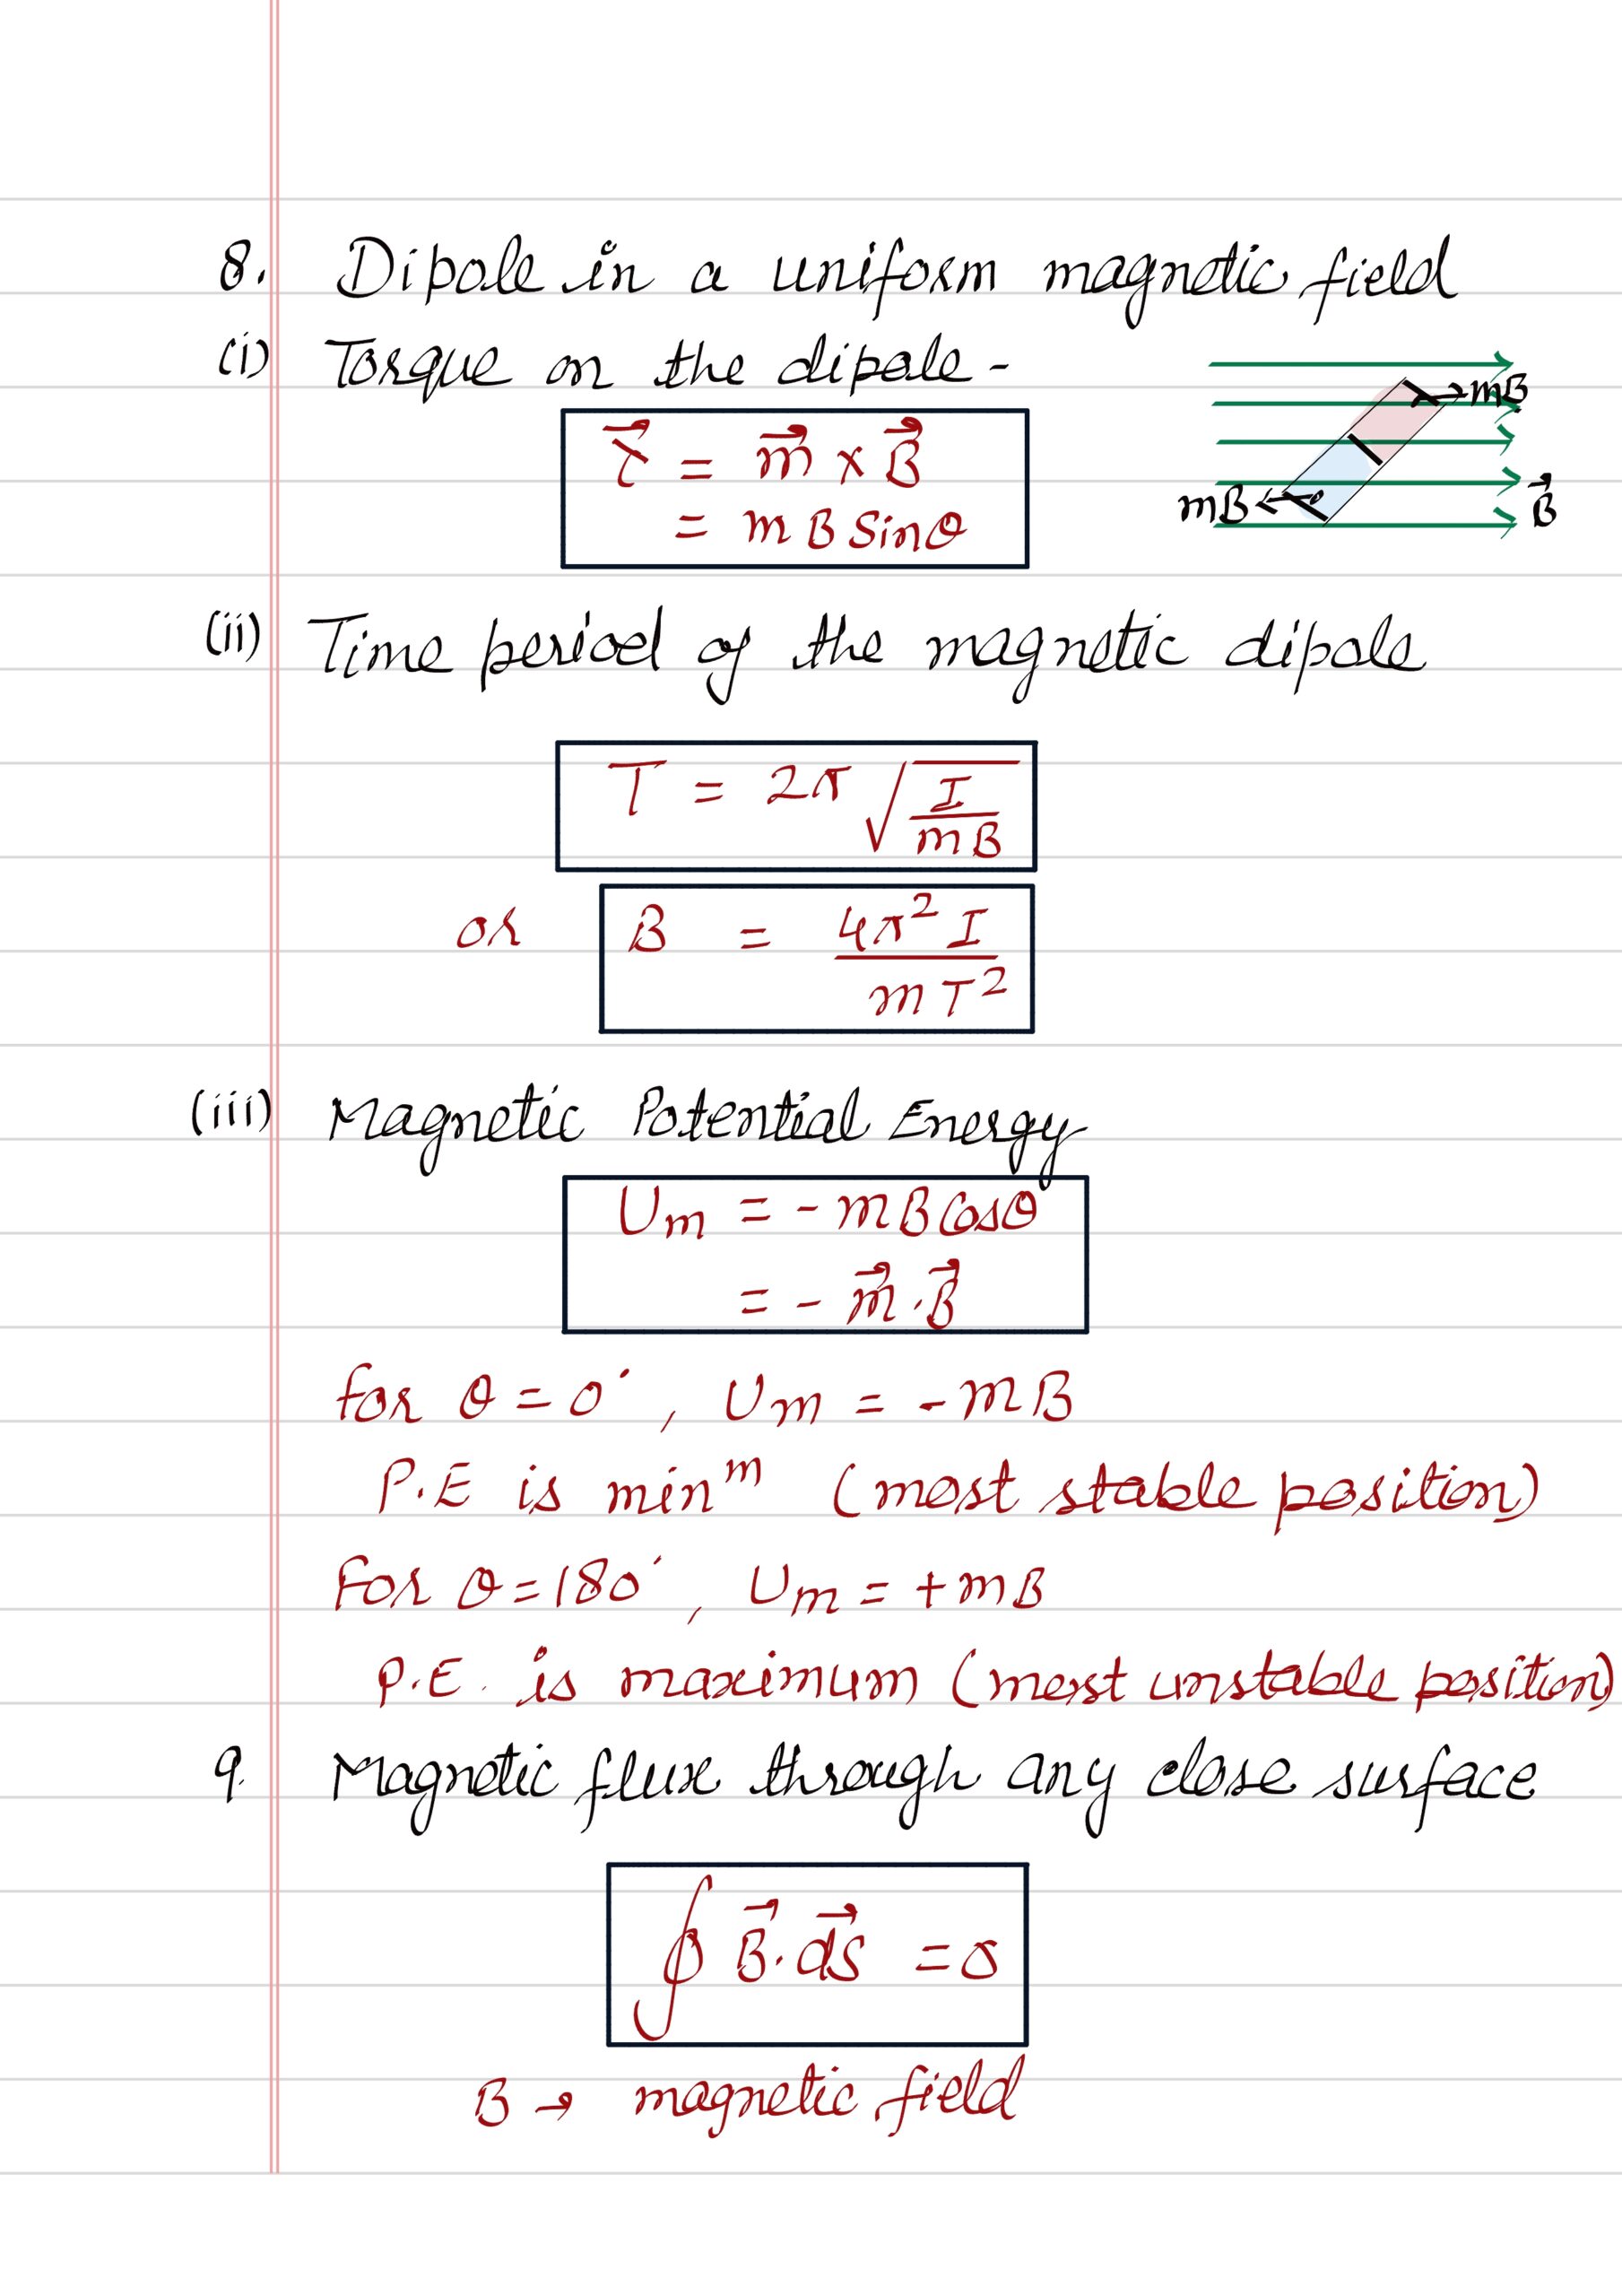 8. Dipole in a uniform magnetic field
(i) Torque on the dipole -
mB
τ⃗ = m⃗ × B⃗
= mB Sinθ
mB
B⃗
(ii) Time period of the magnetic dipole
T = 2π √(I/mB)
or B = 4π² I / mT²
(iii) Magnetic Potential Energy
Um = - mB Cosθ
= - m⃗ . B⃗
for θ = 0°, Um = - mB
P.E is minᵐ (most stable position)
For θ = 180°, Um = + mB
P.E. is maximum (most unstable position)
9. Magnetic flux through any close surface
∮ B⃗ . ds⃗ = 0
B → magnetic field